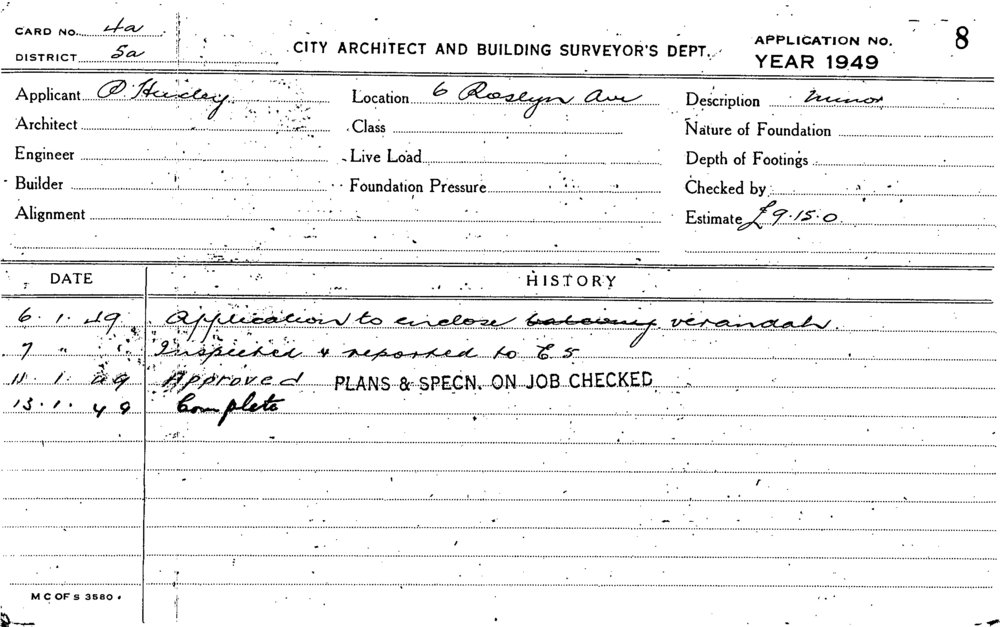 CARD NO. 4a
DISTRICT 5a
CITY ARCHITECT AND BUILDING SURVEYOR'S DEPT.
APPLICATION NO. 8
YEAR 1949
Applicant O Huxley Location 6 Roslyn Ave Description minor
Architect Class Nature of Foundation
Engineer Live Load Depth of Footings
Builder Foundation Pressure Checked by
Alignment Estimate £9.15.0
DATE HISTORY
6.1.49 Application to enclose balcony verandah.
7 " " Inspected & reported to E S
11.1.49 Approved PLANS & SPECN. ON JOB CHECKED
13.1.49 Complete
M C OF S 3580.